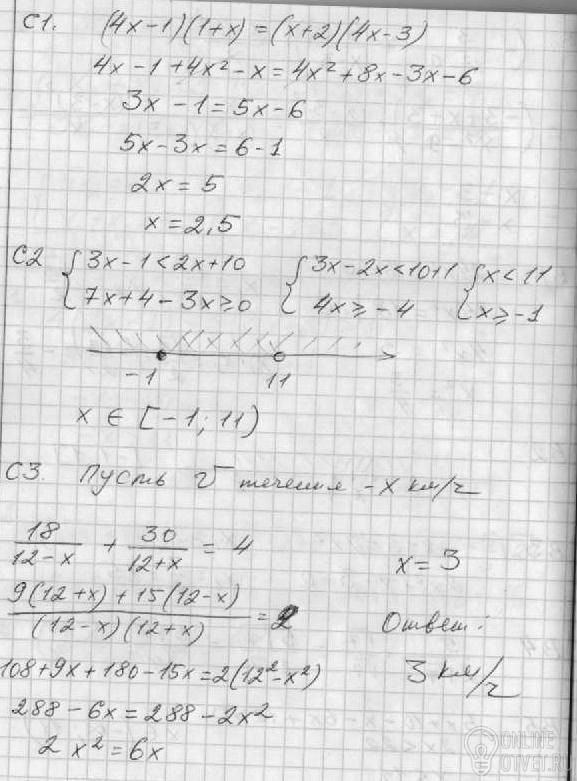 С1. (4x-1)(1+x)=(x+2)(4x-3)
4x-1+4x²-x=4x²+8x-3x-6
3x-1=5x-6
5x-3x=6-1
2x=5
x=2,5
С2 { 3x-1<2x+10 { 3x-2x<10+1 { x<11
7x+4-3x≥0 4x≥-4 x≥-1
-1 11
x ∈ [-1; 11)
С3. Пусть v течения - x км/ч
18/(12-x) + 30/(12+x) = 4
x=3
(9(12+x)+15(12-x))/((12-x)(12+x)) = 2
Ответ:
108+9x+180-15x=2(12²-x²)
3 км/ч
288-6x=288-2x²
2x²=6x
ONLINE
OTVET.RU